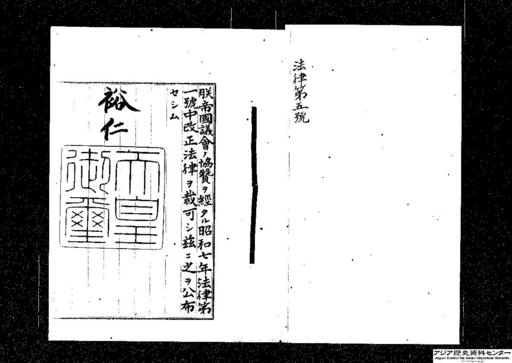 法律第五號
朕帝國議會ノ協贊ヲ經タル昭和七年法律第
一號中改正法律ヲ裁可シ茲ニ之ヲ公布
セシム
裕仁
天皇
御璽
アジア歴史資料センター
Japan Center for Asian Historical Records